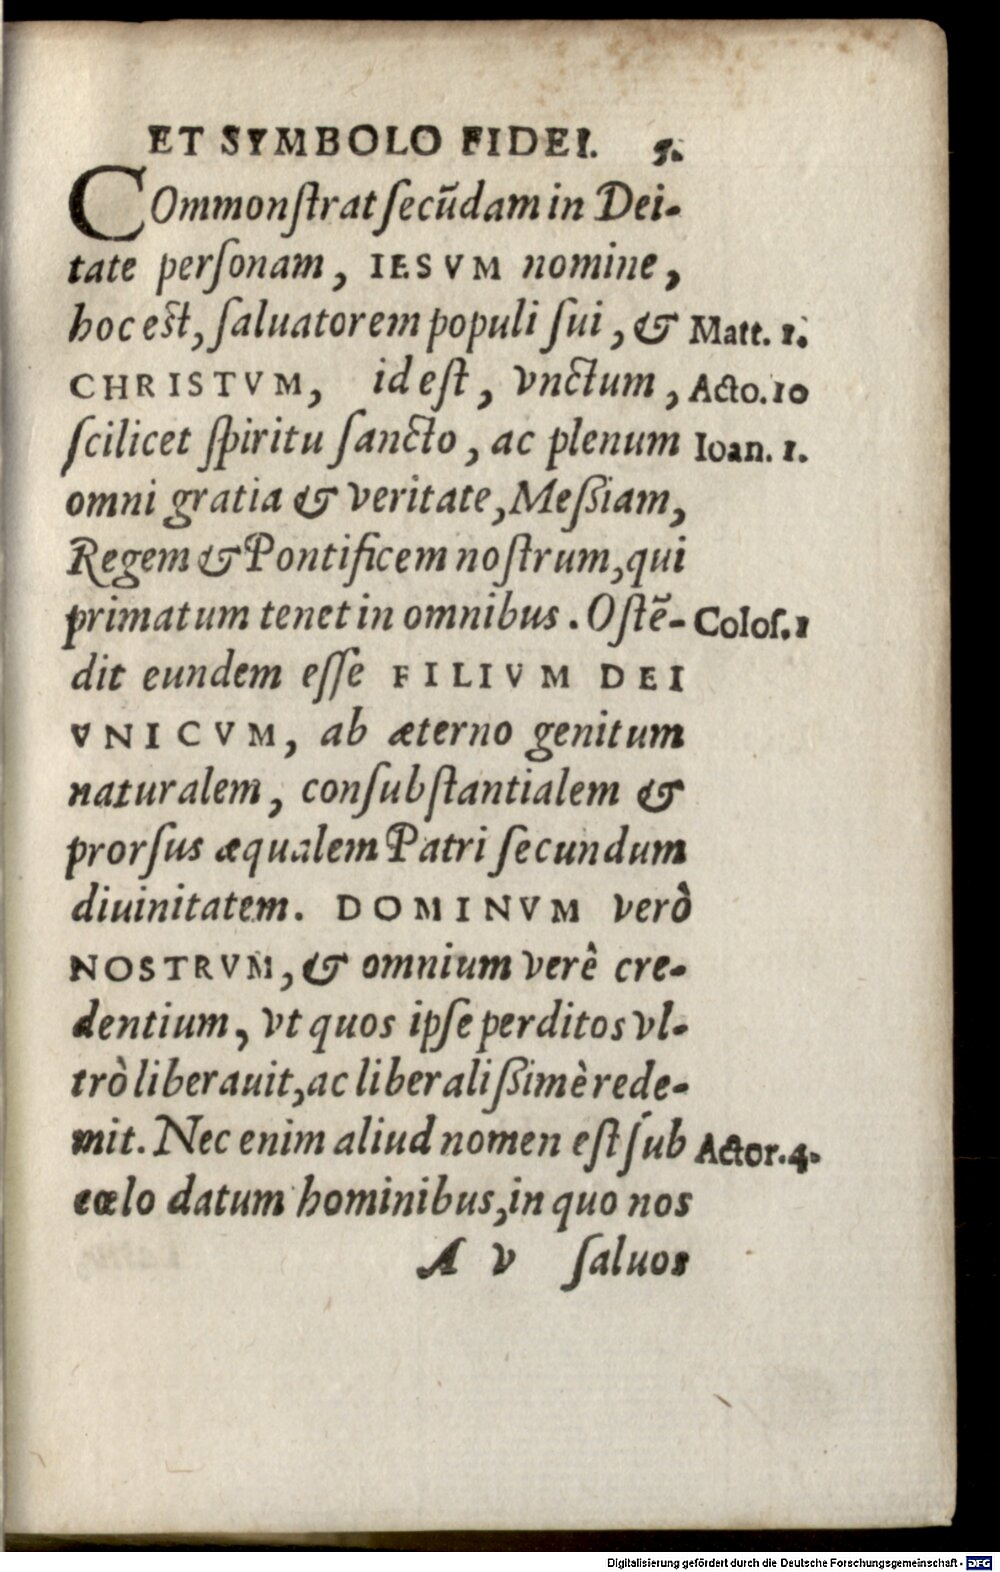 ET SYMBOLO FIDEI. 5.
COmmonſtrat ſecũdam in Dei-
tate perſonam, IESVM nomine,
hoc eſt, ſaluatorem populi ſui, & Matt. 1.
CHRISTVM, id eſt, vnctum, Acto. 10
ſcilicet ſpiritu ſancto, ac plenum Ioan. 1.
omni gratia & veritate, Meßiam,
Regem & Pontificem noſtrum, qui
primatum tenet in omnibus. Oſtẽ- Coloſ. 1
dit eundem eſſe FILIVM DEI
VNICVM, ab æterno genitum
naturalem, conſubſtantialem &
prorſus æqualem Patri ſecundum
diuinitatem. DOMINVM verò
NOSTRVM, & omnium verè cre-
dentium, vt quos ipſe perditos vl-
trò liberauit, ac liberalißimè rede-
mit. Nec enim aliud nomen eſt ſub Actor. 4.
cœlo datum hominibus, in quo nos
A v ſaluos
Digitalisierung gefördert durch die Deutsche Forschungsgemeinschaft - DFG